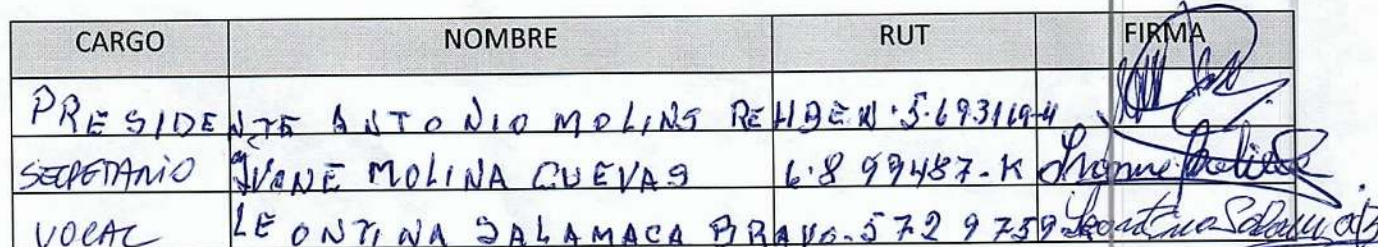 CARGO NOMBRE RUT FIRMA
PRESIDENTE ANTONIO MOLINS REHBEN. 5.693119-4
SECRETARIO IVONE MOLINA CUEVAS 6.899487-K
VOCAL LEONTINA SALAMACA BRAVO. 5729759